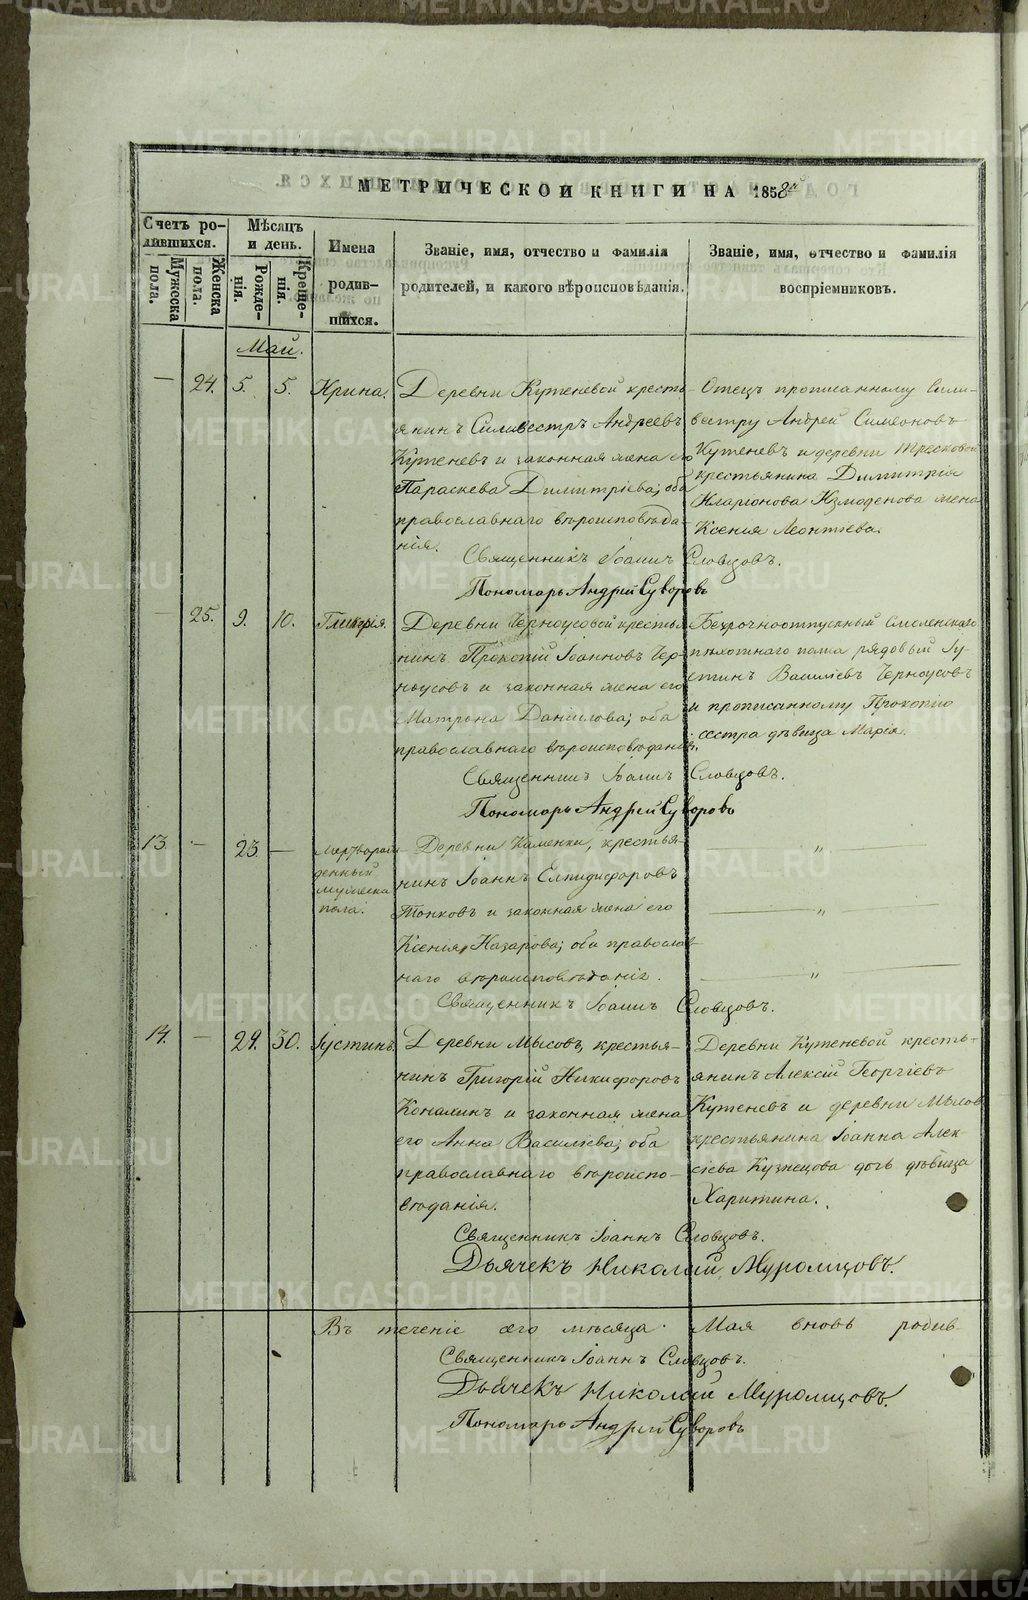 МЕТРИЧЕСКОЙ КНИГИ НА 1858й
Счетъ ро-
дившихся.
Мужеска пола.
Женска пола.
Мѣсяцъ
и день.
Рожде-
нія.
Креще-
нія.
Имена
родив-
шихся.
Званіе, имя, отчество и фамилія
родителей, и какого вѣроисповѣданія.
Званіе, имя, отчество и фамилія
воспріемниковъ.
Май.
— 24. 5. 5. Ирина.
Деревни Кутеневой кресть-
янинъ Силивестръ Андреевъ
Кутеневъ и законная жена его
Параскева Димитріева; оба
православнаго вѣроисповѣда-
нія.
Отецъ прописанному Сили-
вестру Андрей Симеоновъ
Кутеневъ и деревни
крестьянина Димитрія
Иларіонова Измоденова жена
Ксенія Леонтіева.
Священникъ Іоаннъ Словцовъ.
Пономарь Андрей Суворовъ
— 25. 9. 10. Гликерія.
Деревни Черноусовой крестья-
нинъ Прокопій Іоанновъ Чер-
ноусовъ и законная жена его
Матрона Даніилова; оба
православнаго вѣроисповѣданія.
Безсрочноотпускный Смоленскаго
пѣхотнаго полка рядовый Іу-
стинъ Василіевъ Черноусовъ
и прописанному Прокопію
сестра дѣвица Марія.
Священникъ Іоаннъ Словцовъ.
Пономарь Андрей Суворовъ
13. — 23. — Мертворож-
денный
мужеска
пола.
Деревни Каменки, крестья-
нинъ Іоаннъ Елпидифоровъ
Топковъ и законная жена его
Ксенія Назарова; оба православ-
наго вѣроисповѣданія.
— „ —
— „ —
— „ —
Священникъ Іоаннъ Словцовъ.
14. — 29. 30. Іустинъ.
Деревни Мысовъ, крестья-
нинъ Григорій Никифоровъ
Коналинъ и законная жена
его Анна Василіева; оба
православнаго вѣроиспо-
вѣданія.
Деревни Кутеневой кресть-
янинъ Алексій Георгіевъ
Кутеневъ и деревни Мысовъ
крестьянина Іоанна Алек-
сіева Кузнецова дочь дѣвица
Харитина.
Священникъ Іоаннъ Словцовъ.
Дьячекъ Николай Муромцовъ.
Въ теченіе сего мѣсяца Мая вновь родив-
Священникъ Іоаннъ Словцовъ.
Дьячекъ Николай Муромцовъ.
Пономарь Андрей Суворовъ
METRIKI.GASO-URAL.RU